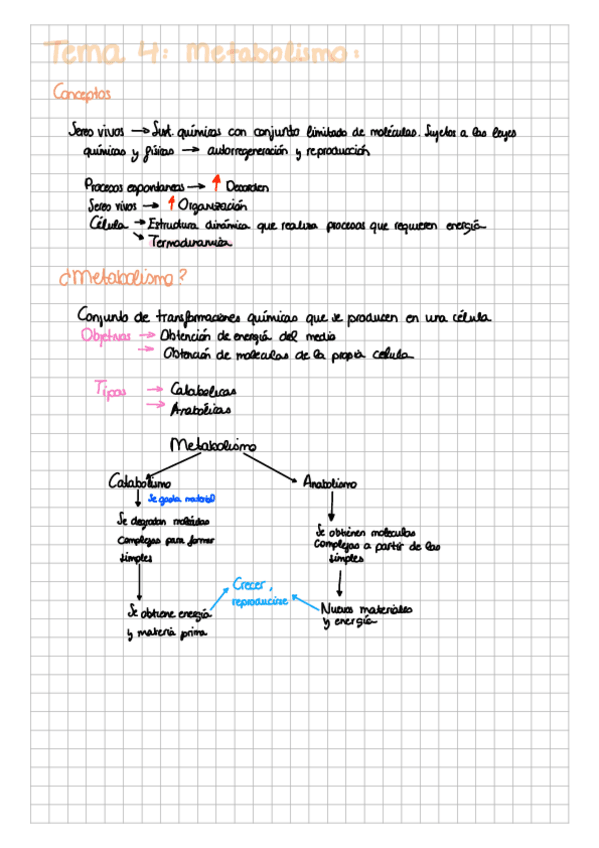 Tema 4: Metabolismo:
Conceptos
Seres vivos → Sust. químicas con conjunto limitado de moléculas. Sujetos a las leyes
químicas y físicas → autorregeneración y reproducción
Procesos espontaneos → ↑ Desorden
Seres vivos → ↑ Organización
Célula → Estructura dinámica que realiza procesos que requieren energía
→ Termodinamica
¿Metabolismo?
Conjunto de transformaciones químicas que se producen en una célula
Objetivos → Obtención de energía del medio
→ Obtención de moleculas de la propia celula
Tipos → Catabolicas
→ Anabólicas
Metabolismo
Catabolismo
Anabolismo
Se gasta material
Se degradan moléculas
complejas para formar
simples
Se obtienen moleculas
complejas a partir de las
simples
Crecer,
reproducirse
Se obtiene energía
y materia prima
Nuevos materiales
y energía